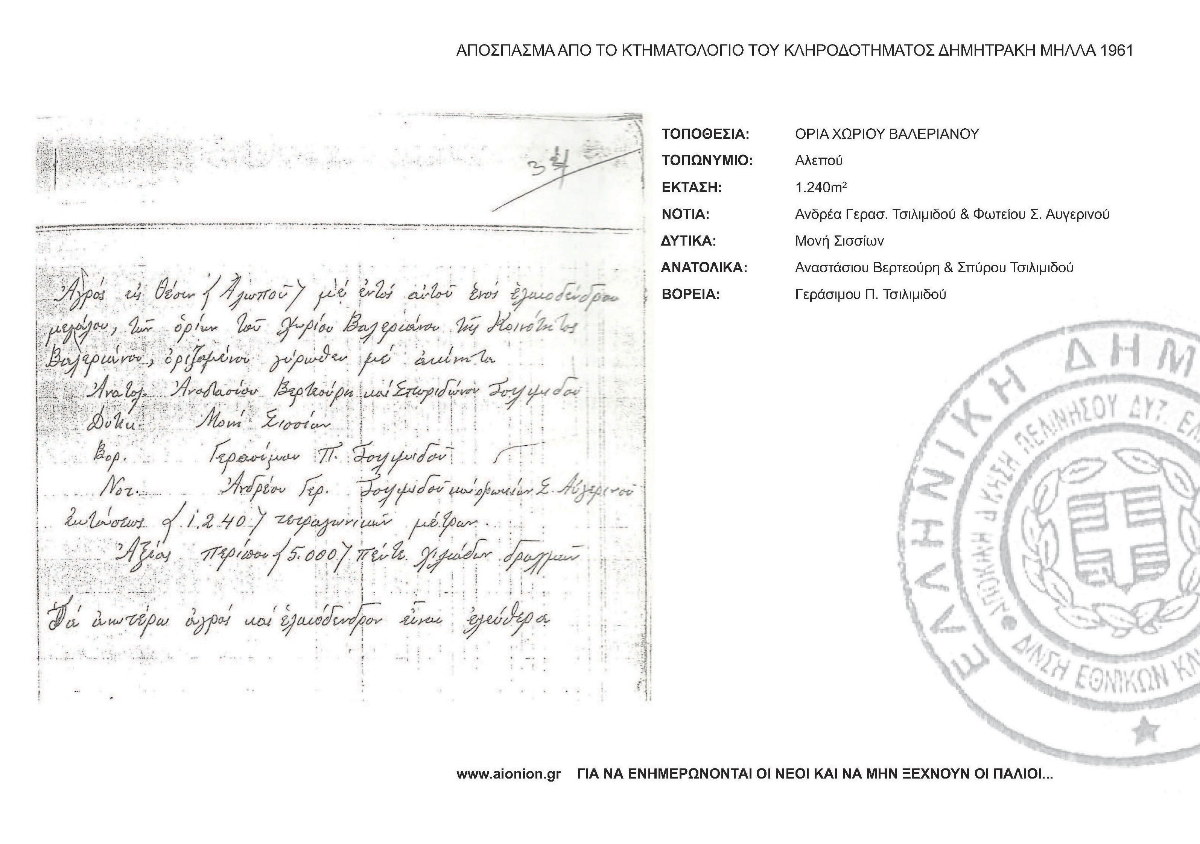 ΑΠΟΣΠΑΣΜΑ ΑΠΟ ΤΟ ΚΤΗΜΑΤΟΛΟΓΙΟ ΤΟΥ ΚΛΗΡΟΔΟΤΗΜΑΤΟΣ ΔΗΜΗΤΡΑΚΗ ΜΗΛΛΑ 1961
34
Ἀγρός εἰς θέσιν ( Ἀλωποῦ ) μέ ἐντός αὐτοῦ ἑνός ἐλαιοδένδρου
μεγάλου, τῶν ὁρίων τοῦ χωρίου Βαλεριάνου τῆς Κοινότητος
Βαλεριάνου, ὁριζομένου γύρωθεν μέ ἀκίνητα
Ἀνατολ. Ἀναστασίου Βερτεούρη καί Σπυριδώνου Τσιλιμιδοῦ
Δυτικ. Μονή Σισσίων
Βορ. Γερασίμου Π. Τσιλιμιδοῦ
Νοτ. Ἀνδρέου Γερ. Τσιλιμιδοῦ καί Φωτείου Σ. Αὐγερινοῦ
ἐκτάσεως ( 1.240 ) τετραγωνικῶν μέτρων.
Ἀξίας περίπου ( 5.000 ) πέντε χιλιάδων δραχμῶν
Τά ἀνωτέρω ἀγρός καί ἐλαιόδενδρον εἶναι ἐλεύθερα
ΤΟΠΟΘΕΣΙΑ: ΟΡΙΑ ΧΩΡΙΟΥ ΒΑΛΕΡΙΑΝΟΥ
ΤΟΠΩΝΥΜΙΟ: Αλεπού
ΕΚΤΑΣΗ: 1.240m²
ΝΟΤΙΑ: Ανδρέα Γερασ. Τσιλιμιδού & Φωτείου Σ. Αυγερινού
ΔΥΤΙΚΑ: Μονή Σισσίων
ΑΝΑΤΟΛΙΚΑ: Αναστάσιου Βερτεούρη & Σπύρου Τσιλιμιδού
ΒΟΡΕΙΑ: Γεράσιμου Π. Τσιλιμιδού
ΕΛΛΗΝΙΚΗ ΔΗΜ
ΠΕΛ/ΝΗΣΟΥ ΔΥΤ. ΕΛ
Δ/ΝΣΗ ΕΘΝΙΚΩΝ ΚΛ
www.aionion.gr ΓΙΑ ΝΑ ΕΝΗΜΕΡΩΝΟΝΤΑΙ ΟΙ ΝΕΟΙ ΚΑΙ ΝΑ ΜΗΝ ΞΕΧΝΟΥΝ ΟΙ ΠΑΛΙΟΙ...